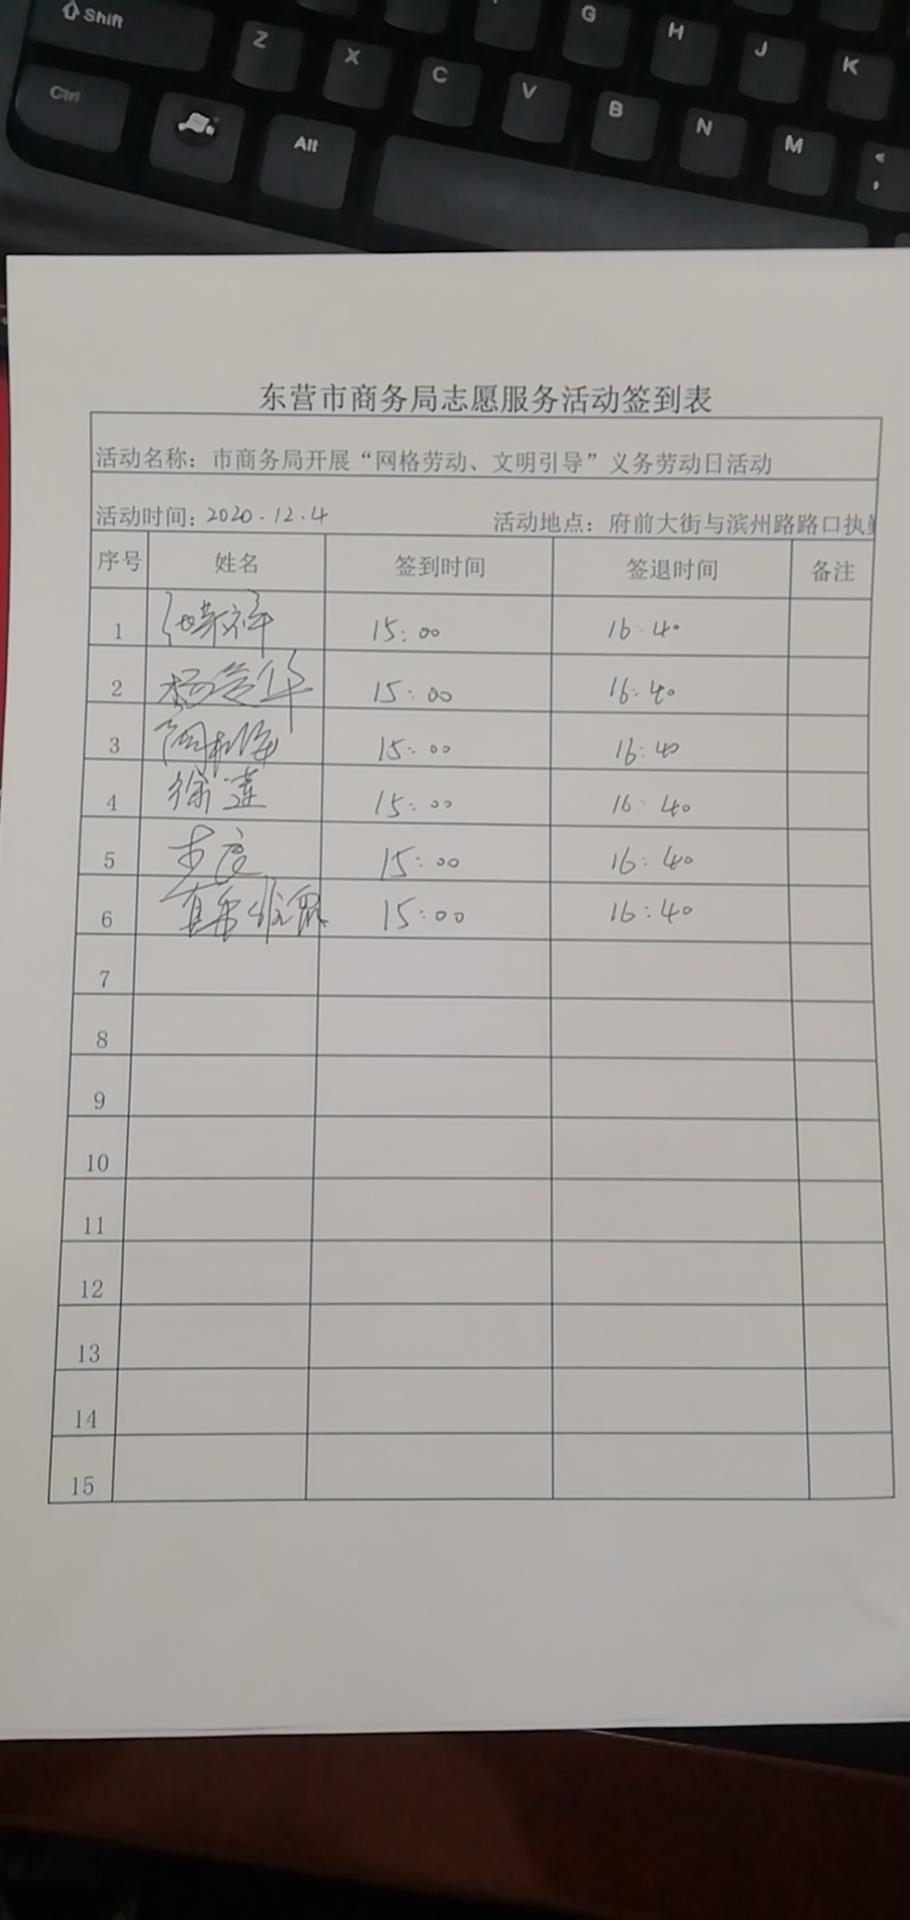 Shift
Z
X
C
V
B
N
M
G
H
J
K
Ctrl
Alt
东营市商务局志愿服务活动签到表
活动名称：市商务局开展“网格劳动、文明引导”义务劳动日活动
活动时间：2020.12.4 活动地点：府前大街与滨州路路口执勤
序号 姓名 签到时间 签退时间 备注
1 15:00 16:40
2 15:00 16:40
3 15:00 16:40
4 徐莲 15:00 16:40
5 15:00 16:40
6 15:00 16:40
7
8
9
10
11
12
13
14
15